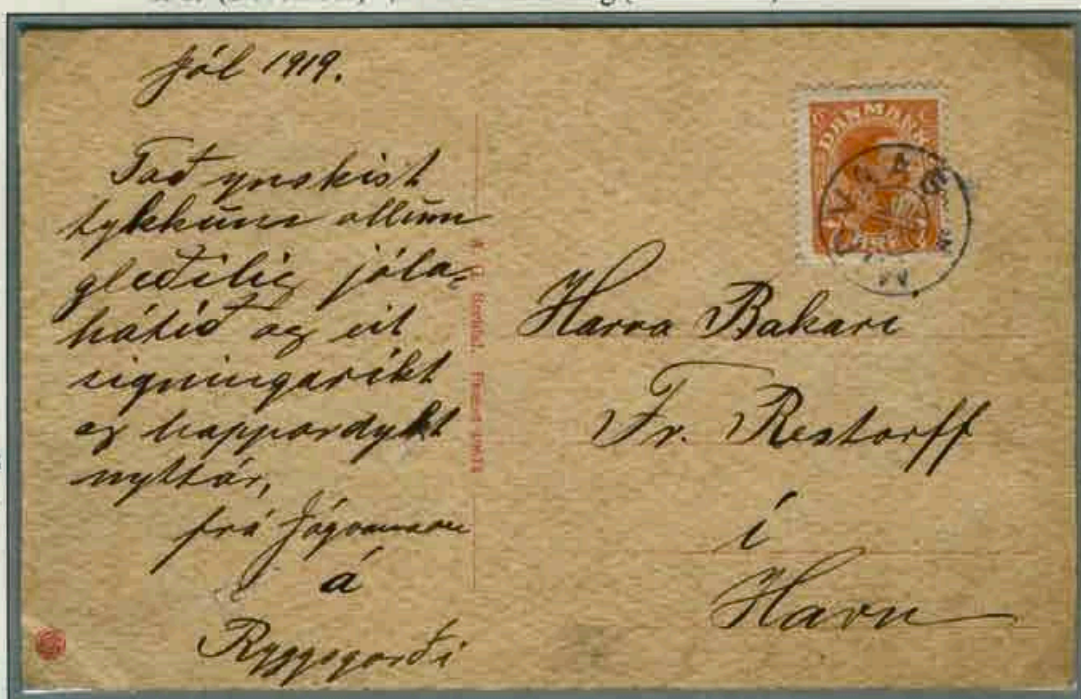 Jól 1919.
Tað ynskist
tykkum ollum
gleðilig jóla-
hátíð og eit
signingaríkt
og happordykt
nyttár,
frá
á
Ryggsgorði
DANMARK
Harra Bakari
Fr. Restorff
í
Havn